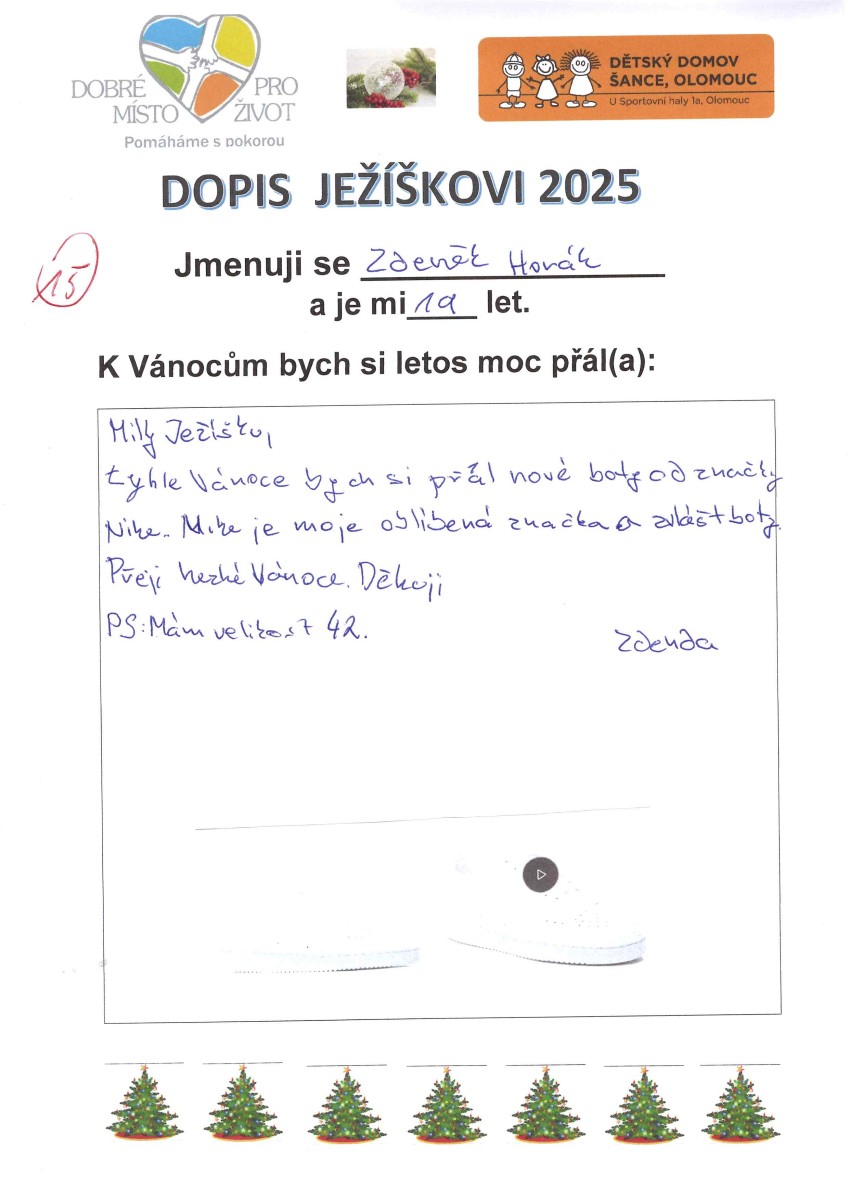 DOBRÉ PRO
MÍSTO ŽIVOT
Pomáháme s pokorou
DĚTSKÝ DOMOV
ŠANCE, OLOMOUC
U Sportovní haly 1a, Olomouc
DOPIS JEŽÍŠKOVI 2025
15
Jmenuji se Zdeněk Horák
a je mi 19 let.
K Vánocům bych si letos moc přál(a):
Milý Ježíšku,
tyhle Vánoce bych si přál nové boty od značky
Nike. Nike je moje oblíbená značka a zvlášt boty.
Přeji hezké Vánoce. Děkuji
PS: Mám velikost 42.
Zdenda